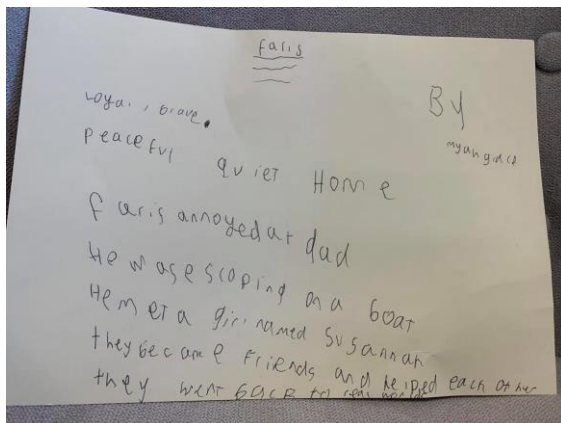 Faris
Loyal, brave.
By
peaceful quiet Home
Faris annoyed at dad
He was escoping on a boat
He met a girl named Susannah
they became friends and helped each other
they went back to real